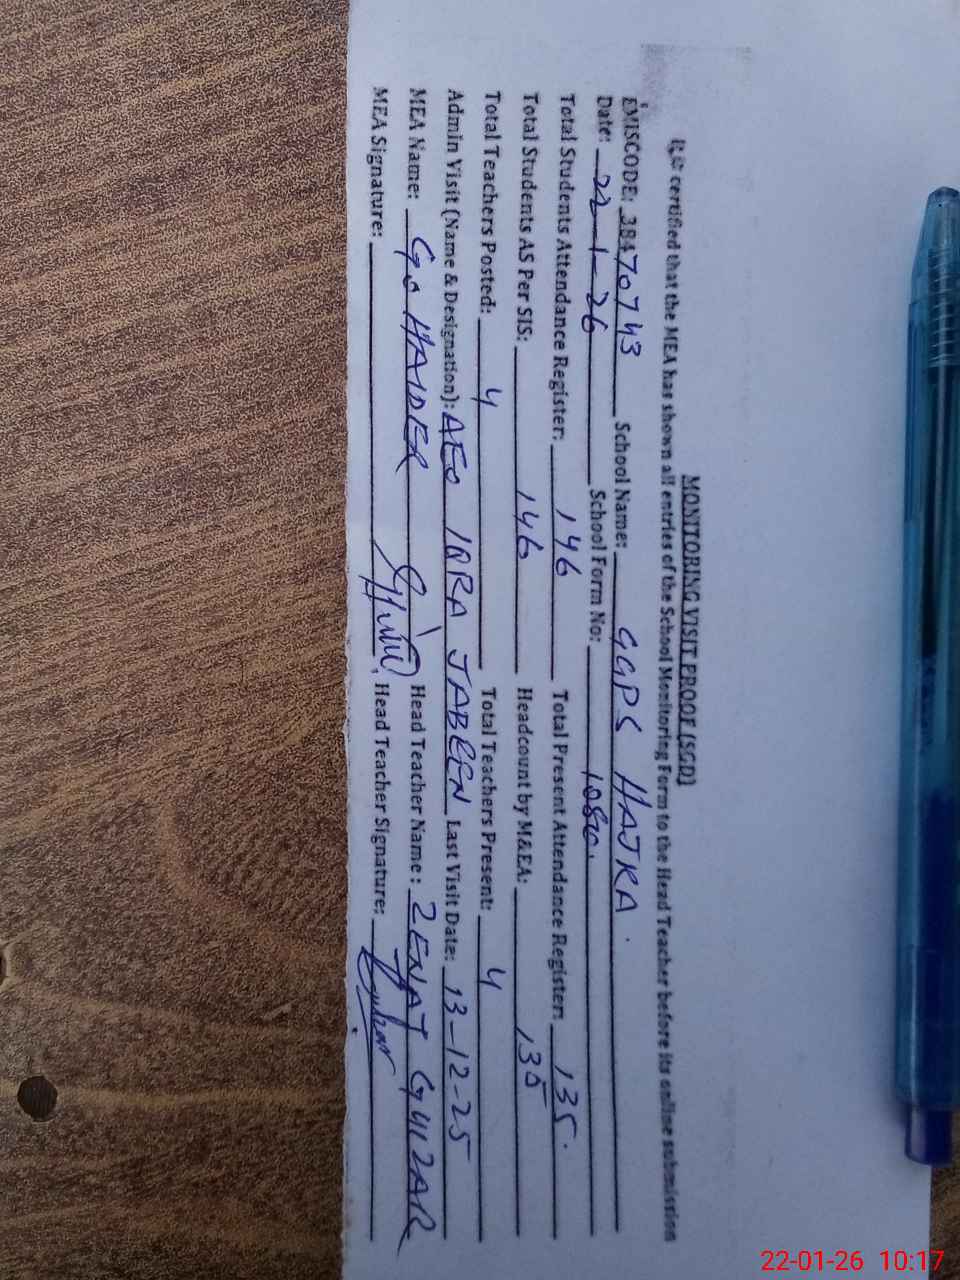 MONITORING VISIT PROOF (SGD)
It is certified that the MEA has shown all entries of the School Monitoring Form to the Head Teacher before its online submission
EMISCODE: 38470743 School Name: GGPS HAJRA.
Date: 22-1-26 School Form No: 1080.
Total Students Attendance Register: 146 Total Present Attendance Register: 135.
Total Students AS Per SIS: 146 Headcount by M&EA: 135
Total Teachers Posted: 4 Total Teachers Present: 4
Admin Visit (Name & Designation): AEO IQRA JABEEN Last Visit Date: 13-12-25
MEA Name: GS HAIDER Head Teacher Name: ZENAT GULZAR
MEA Signature: Head Teacher Signature:
22-01-26 10:17